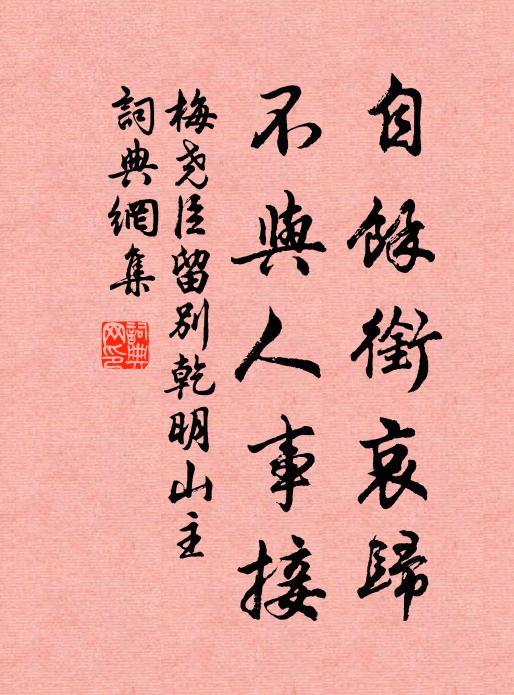 自餘銜哀歸
不與人事接
梅堯臣留別乾明山主
詞典網集
詞典網印